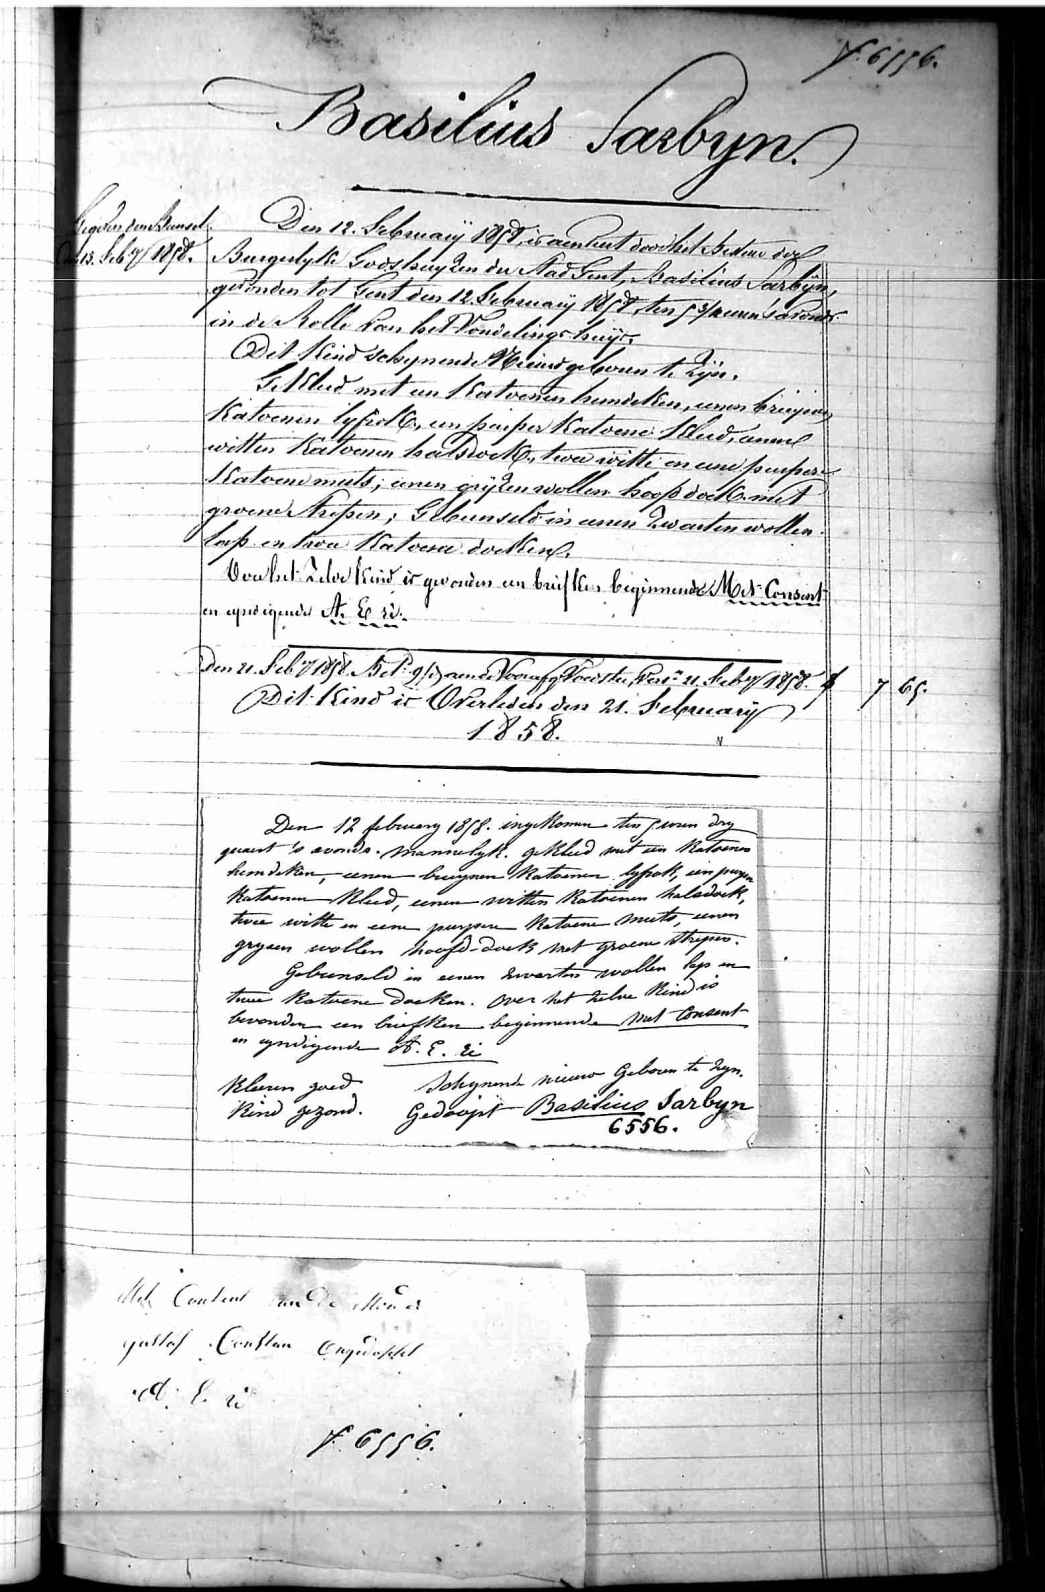 6556.
Basilius Sarbyn.
Den 12. February 1858, is aenveert door het Bestuer der
Burgerlyke Godshuyzen der Stad Gent, Basilius Sarbÿn,
gevonden tot Gent den 12 February 1858, ten 5 3/4 uren 's avonds
in de Rolle van het Vondelings-huÿs.
Dit Kind schynende Nieuwgeboren te zÿn.
Gekleed met een Katoenen hemdeken, eenen bruynen
Katoenen lyfrok, een purper Katoene Kleed, eenen
witten Katoenen halsdoek, twee witte en eene purpere
Katoene muts; eenen grÿzen wollen hoofdoek met
groene strepen; Gebunseld in eenen zwarten wollen
lap en twee Katoene doeken.
Over het zelve Kind is gevonden een briefken beginnende Met Consent
en eyndigende A. E. zi.
Den 21. Feb 1858. 21. Feb 1858. 7 65.
Dit Kind is Overleden den 21. February
1858.
Den 12 february 1858. ingekomen ten 5 uren dry
quaert 's avonds. mannelyk. gekleed met een Katoenen
hemdeken, eenen bruynen Katoenen lyfrok, een purper
Katoenen Kleed, eenen witten Katoenen halsdoek,
twee witte en eene purpere Katoene muts, eenen
grysen wollen hoofd-doek met groene strepen.
Gebunseld in eenen zwarten wollen lap en
twee Katoene doeken. over het zelve Kind is
bevonden een briefken beginnende met Consent
en eyndigende A. E. zi
Kleeren goed Schynend nieuw Geboren te zyn.
Kind gezond. Gedoopt Basilius Sarbyn
6556.
Met Consent van de Moeder
gustaf Constan ongedopt
A. E. zi
6556.